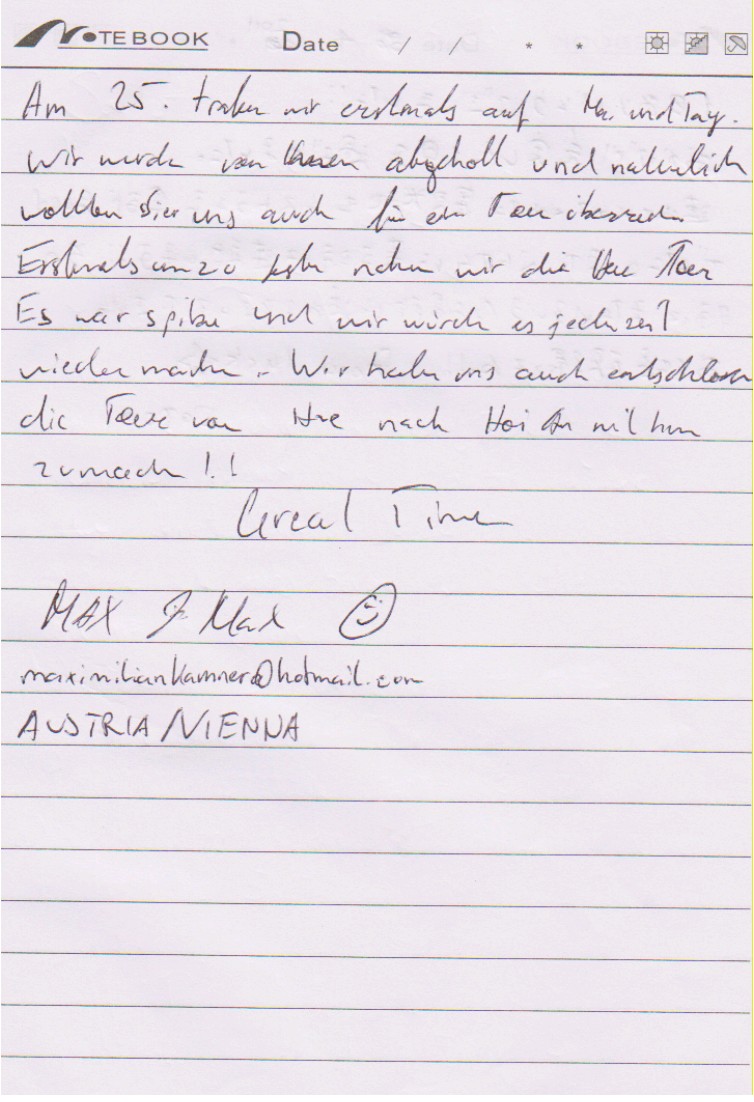 NOTEBOOK Date / / * *
Am 25. trafen wir erstmals auf Ha. und Tay.
Wir wurden von Ihnen abgeholt und natürlich
wollten Sie uns auch für ein Toer überreden
Erstmals um zu nehm wir die Hue Toer
Es war spitze und wir würden es jederzeit
wieder machen. Wir haben uns auch entschlossen
die Toere von Hue nach Hoi An mit ihnen
zu machen!!
Great Time
MAX & Max
maximiliankamner@hotmail.com
AUSTRIA/VIENNA